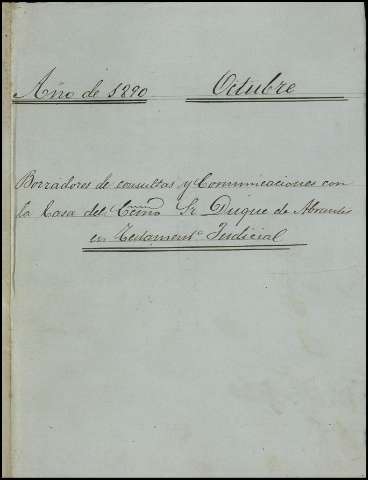 Año de 1890 Octubre
Borradores de consultas y Comunicaciones con
la Casa del Excmo Sr Duque de Abrantes
en Testament.ª Judicial